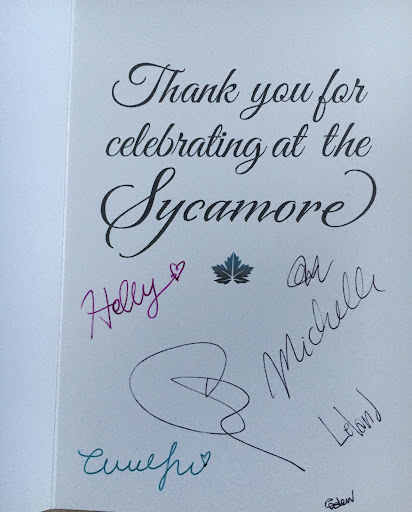 Thank you for
celebrating at the
Sycamore
Holly
Michelle
Leland